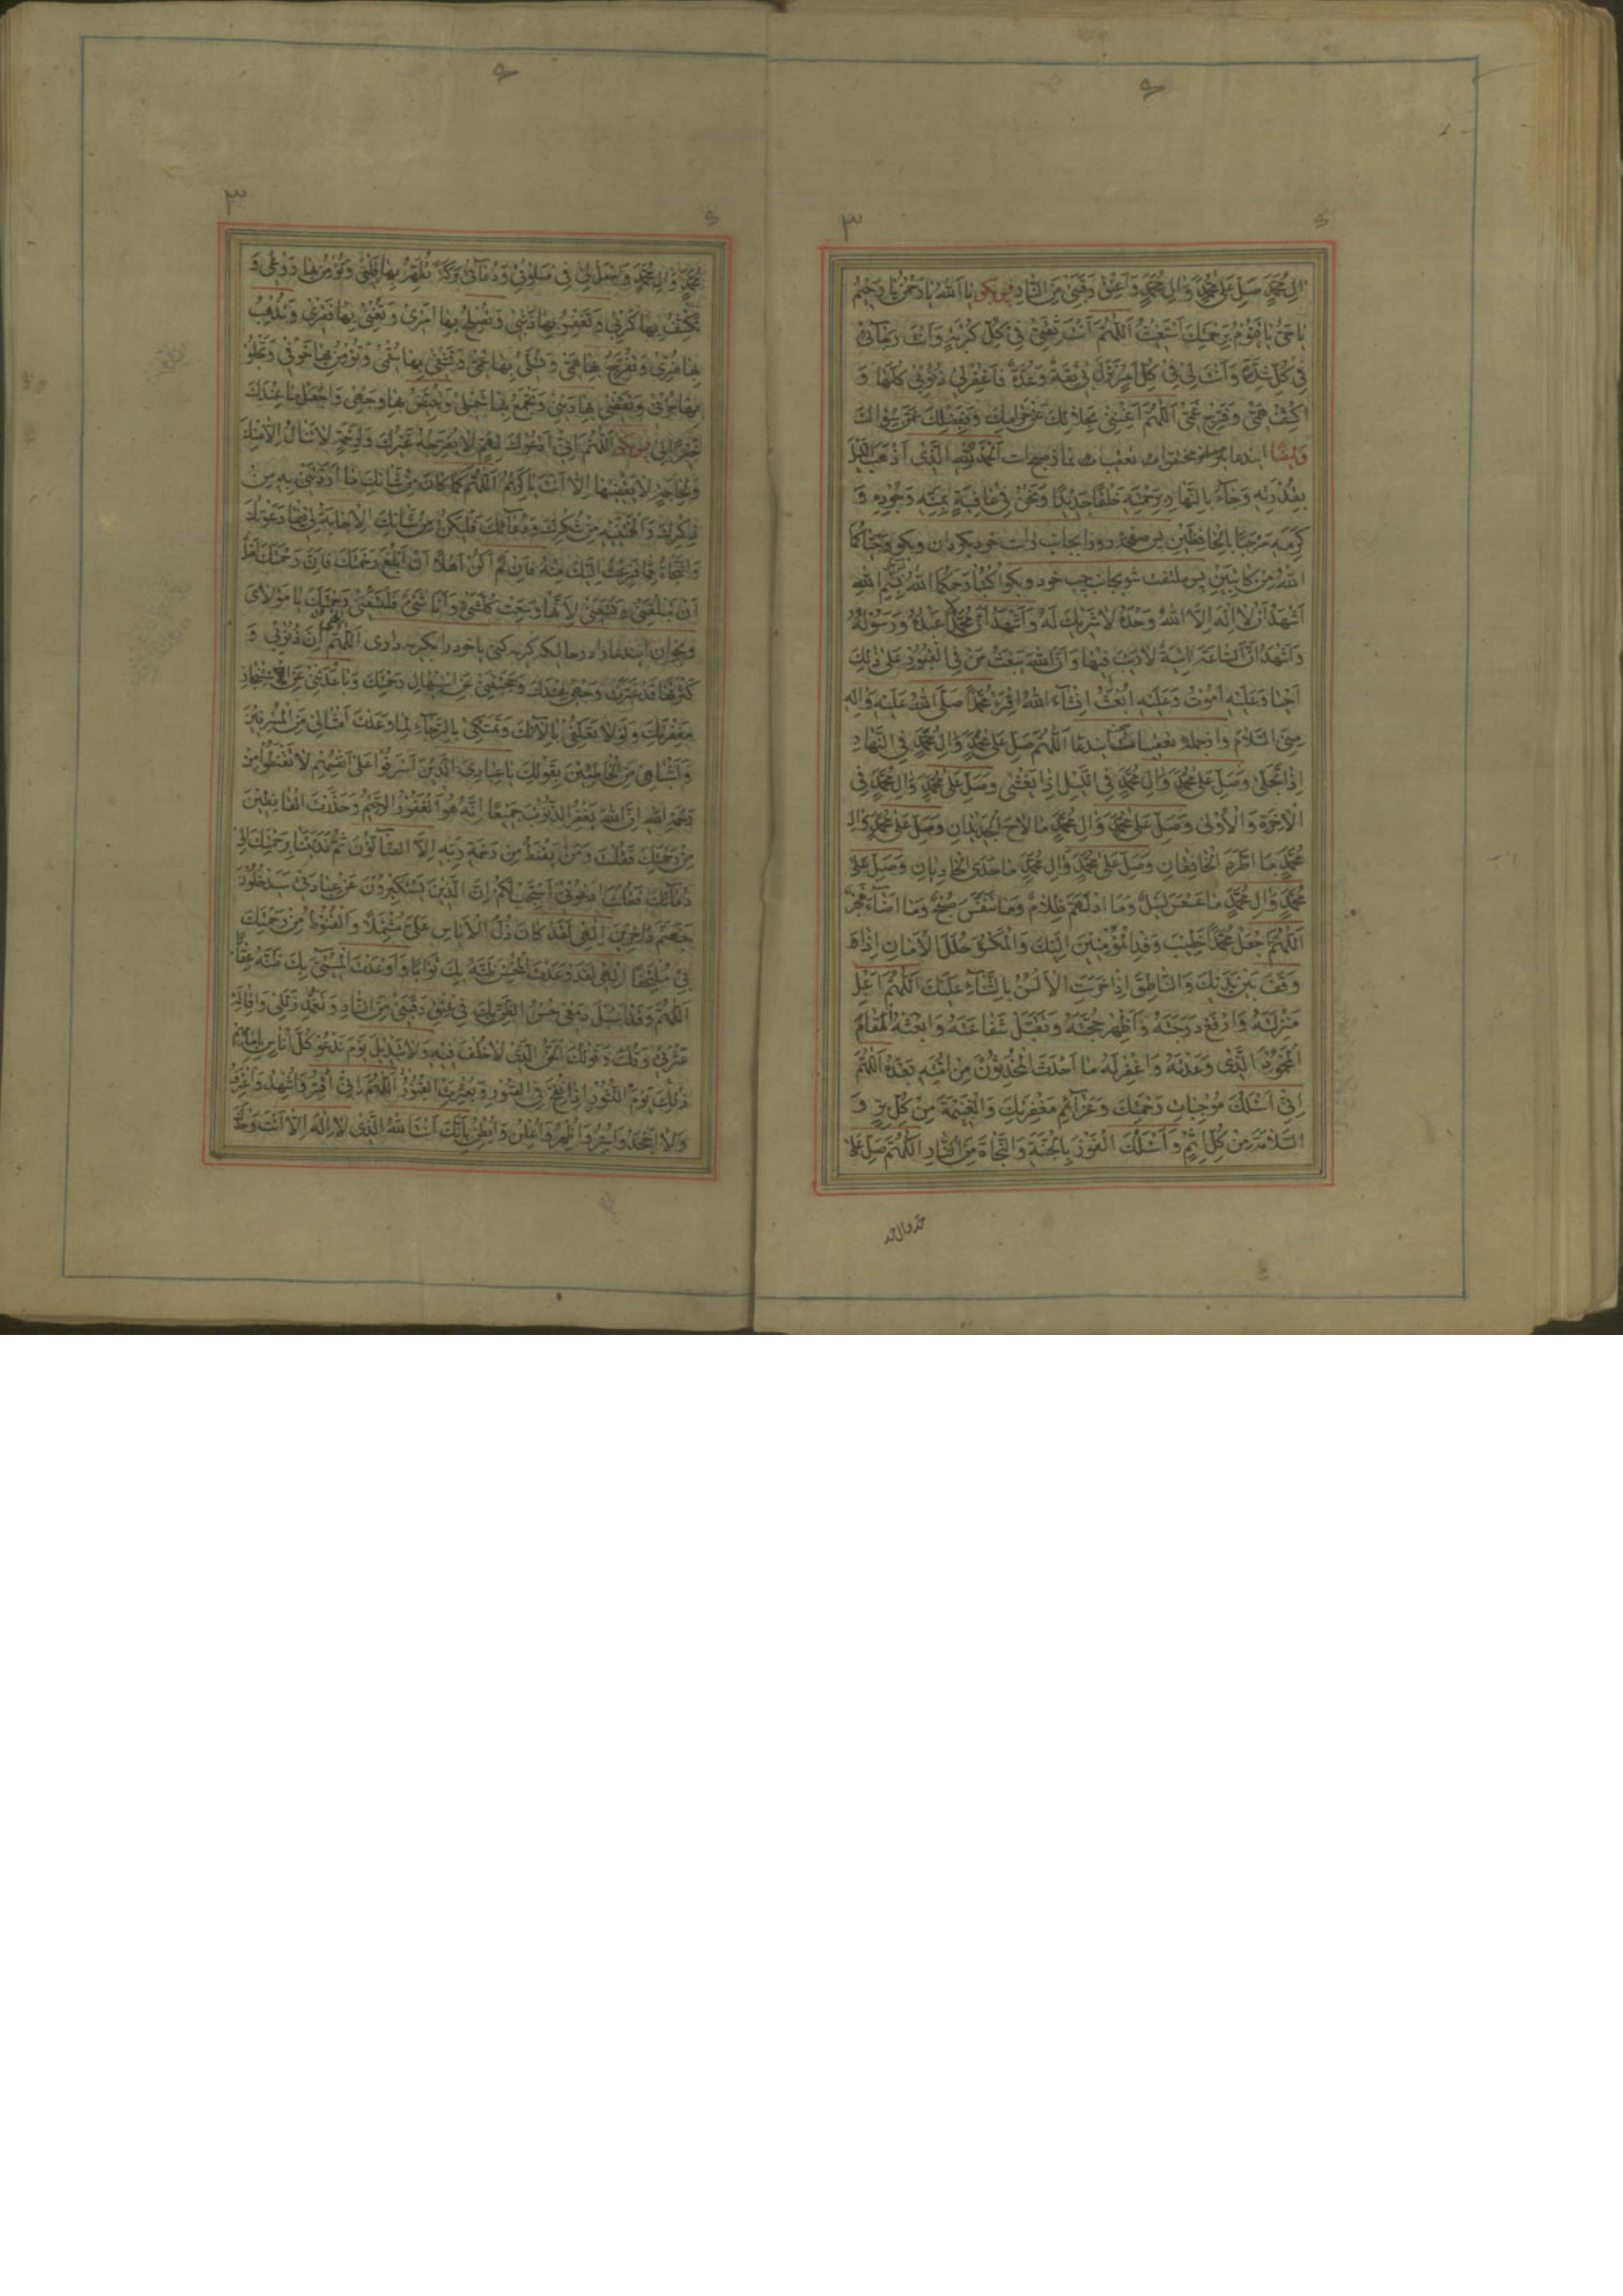 ۳
اٰلِ مُحَمَّدٍ صَلِّ عَلٰى مُحَمَّدٍ وَاٰلِ مُحَمَّدٍ وَاَعْتِقْ رَقَبَتِیْ مِنَ النَّارِ پس بکو یا اَللهُ یا رَحْمٰنُ یا رَحِیْمُ
یا حَیُّ یا قَیُّوْمُ بِرَحْمَتِكَ اَسْتَغِیْثُ اَللّٰهُمَّ اَنْتَ ثِقَتِیْ فِیْ كُلِّ كُرْبَةٍ وَاَنْتَ رَجَآئِیْ
فِیْ كُلِّ شِدَّةٍ وَاَنْتَ لِیْ فِیْ كُلِّ اَمْرٍ نَزَلَ بِیْ ثِقَةٌ وَعُدَّةٌ فَاغْفِرْ لِیْ ذُنُوْبِیْ كُلَّهَا وَ
اكْشِفْ هَمِّیْ وَفَرِّجْ غَمِّیْ اَللّٰهُمَّ اَغْنِنِیْ بِحَلَالِكَ عَنْ حَرَامِكَ وَبِفَضْلِكَ عَمَّنْ سِوَاكَ
وَایضًا ایندعا تعقیبات نماز صبح است اَلْحَمْدُ لِلّٰهِ الَّذِیْ اَذْهَبَ اللَّیْلَ
بِقُدْرَتِهِ وَجَآءَ بِالنَّهَارِ بِرَحْمَتِهِ خَلْقًا جَدِیْدًا وَنَحْنُ فِیْ عَافِیَةٍ بِمَنِّهِ وَجُوْدِهِ وَ
كَرَمِهِ مَرْحَبًا بِالْحَافِظَیْنِ پس رو را بجانب راست خود بکردان وبکو وَحَیَّاكُمَا
اللهُ مِنْ كَاتِبَیْنِ پس ملتفت شو بجانب چپ خود وبکو اُكْتُبَا رَحِمَكُمَا اللهُ بِسْمِ اللهِ
اَشْهَدُ اَنْ لَا اِلٰهَ اِلَّا اللهُ وَحْدَهُ لَا شَرِیْكَ لَهُ وَاَشْهَدُ اَنَّ مُحَمَّدًا عَبْدُهُ وَرَسُوْلُهُ
وَاَشْهَدُ اَنَّ السَّاعَةَ اٰتِیَةٌ لَا رَیْبَ فِیْهَا وَاَنَّ اللهَ یَبْعَثُ مَنْ فِی الْقُبُوْرِ عَلٰى ذٰلِكَ
اَحْیَا وَعَلَیْهِ اَمُوْتُ وَعَلَیْهِ اُبْعَثُ اِنْشَآءَ اللهُ اِقْرَءْ مُحَمَّدًا صَلَّى اللهُ عَلَیْهِ وَاٰلِهِ
مِنِّی السَّلَامَ وازجمله تعقیبات ایندعا اَللّٰهُمَّ صَلِّ عَلٰى مُحَمَّدٍ وَاٰلِ مُحَمَّدٍ فِی النَّهَارِ
اِذَا تَجَلّٰى وَصَلِّ عَلٰى مُحَمَّدٍ وَاٰلِ مُحَمَّدٍ فِی اللَّیْلِ اِذَا یَغْشٰى وَصَلِّ عَلٰى مُحَمَّدٍ وَاٰلِ مُحَمَّدٍ فِی
الْاٰخِرَةِ وَالْاُوْلٰى وَصَلِّ عَلٰى مُحَمَّدٍ وَاٰلِ مُحَمَّدٍ مَا لَاحَ الْجَدِیْدَانِ وَصَلِّ عَلٰى مُحَمَّدٍ وَاٰلِ
مُحَمَّدٍ مَا اطَّرَدَ الْخَافِقَانِ وَصَلِّ عَلٰى مُحَمَّدٍ وَاٰلِ مُحَمَّدٍ مَا حَدَى الْحَادِیَانِ وَصَلِّ عَلٰى
مُحَمَّدٍ وَاٰلِ مُحَمَّدٍ مَا عَسْعَسَ لَیْلٌ وَمَا ادْلَهَمَّ ظَلَامٌ وَمَا تَنَفَّسَ صُبْحٌ وَمَا اَضَآءَ فَجْرٌ
اَللّٰهُمَّ اجْعَلْ مُحَمَّدًا خَطِیْبَ وَفْدِ الْمُؤْمِنِیْنَ اِلَیْكَ وَالْمَكْسُوَّ حُلَلَ الْاَمَانِ اِذَا
وَقَفَ بَیْنَ یَدَیْكَ وَالنَّاطِقَ اِذَا خَرِسَتِ الْاَلْسُنُ بِالثَّنَآءِ عَلَیْكَ اَللّٰهُمَّ اَعْلِ
مَنْزِلَتَهُ وَارْفَعْ دَرَجَتَهُ وَاَظْهِرْ حُجَّتَهُ وَتَقَبَّلْ شَفَاعَتَهُ وَابْعَثْهُ الْمَقَامَ
الْمَحْمُوْدَ الَّذِیْ وَعَدْتَهُ وَاغْفِرْ لَهُ مَا اَحْدَثَ الْمُحْدِثُوْنَ مِنْ اُمَّتِهِ بَعْدَهُ اَللّٰهُمَّ
اِنِّیْ اَسْئَلُكَ مُوْجِبَاتِ رَحْمَتِكَ وَعَزَآئِمَ مَغْفِرَتِكَ وَالْغَنِیْمَةَ مِنْ كُلِّ بِرٍّ وَ
السَّلَامَةَ مِنْ كُلِّ اِثْمٍ وَاَسْئَلُكَ الْفَوْزَ بِالْجَنَّةِ وَالنَّجَاةَ مِنَ النَّارِ اَللّٰهُمَّ صَلِّ عَلٰى
محمد وال محمد
۳
مُحَمَّدٍ وَاٰلِ مُحَمَّدٍ وَاجْعَلْ لِیْ فِیْ صَلٰوتِیْ وَدُعَآئِیْ بَرَكَةً تُطَهِّرُ بِهَا قَلْبِیْ وَتُؤْمِنُ بِهَا رَوْعَتِیْ وَ
تَكْشِفُ بِهَا كُرَبِیْ وَتَغْفِرُ بِهَا ذَنْبِیْ وَتُصْلِحُ بِهَا اَمْرِیْ وَتُغْنِیْ بِهَا فَقْرِیْ وَتُذْهِبُ
بِهَا ضُرِّیْ وَتُفَرِّجُ بِهَا هَمِّیْ وَتُسَلِّیْ بِهَا غَمِّیْ وَتَشْفِیْ بِهَا سُقْمِیْ وَتُؤْمِنُ بِهَا خَوْفِیْ وَتَجْلُوْ
بِهَا حُزْنِیْ وَتَقْضِیْ بِهَا دَیْنِیْ وَتَجْمَعُ بِهَا شَمْلِیْ وَتُبَیِّضُ بِهَا وَجْهِیْ وَاجْعَلْ مَا عِنْدَكَ
خَیْرًا لِیْ پس بکو اَللّٰهُمَّ اِنِّیْ اَدْعُوْكَ لِهَمٍّ لَا یُفَرِّجُهُ غَیْرُكَ وَلِرَحْمَةٍ لَا تُنَالُ اِلَّا مِنْكَ
وَلِحَاجَةٍ لَا یَقْضِیْهَا اِلَّا اَنْتَ یَا كَرِیْمُ اَللّٰهُمَّ كَمَا كَانَ مِنْ شَانِكَ مَا اَرَدْتَنِیْ بِهِ مِنْ
ذِكْرِكَ وَاَلْهَمْتَنِیْهِ مِنْ شُكْرِكَ وَدُعَآئِكَ فَلْیَكُنْ مِنْ شَانِكَ الْاِجَابَةُ لِیْ فِیْمَا دَعَوْتُكَ
وَالنَّجَاةُ مِمَّا فَزِعْتُ اِلَیْكَ مِنْهُ فَاِنْ لَمْ اَكُنْ اَهْلًا اَنْ اَبْلُغَ رَحْمَتَكَ فَاِنَّ رَحْمَتَكَ اَهْلٌ
اَنْ تَبْلُغَنِیْ وَتَسَعَنِیْ لِاَنَّهَا وَسِعَتْ كُلَّ شَیْءٍ وَاَنَا شَیْءٌ فَلْتَسَعْنِیْ رَحْمَتُكَ یَا مَوْلَایَ
وبخوان ایندعا را درحالیکه کریه کنی یا خود را بکریه داری اَللّٰهُمَّ اِنَّ ذُنُوْبِیْ وَ
كَثْرَتَهَا قَدْ غَبَّرَتْ وَجْهِیْ عِنْدَكَ وَحَجَبَتْنِیْ عَنِ اسْتِیْهَالِ رَحْمَتِكَ وَبَاعَدَتْنِیْ عَنِ اسْتِنْجَازِ
مَغْفِرَتِكَ وَلَوْلَا تَعَلُّقِیْ بِاٰلَآئِكَ وَتَمَسُّكِیْ بِالرَّجَآءِ لِمَا وَعَدْتَ اَمْثَالِیْ مِنَ الْمُسْرِفِیْنَ
وَاَشْبَاهِیْ مِنَ الْخَاطِئِیْنَ بِقَوْلِكَ یَا عِبَادِیَ الَّذِیْنَ اَسْرَفُوْا عَلٰى اَنْفُسِهِمْ لَا تَقْنَطُوْا مِنْ
رَحْمَةِ اللهِ اِنَّ اللهَ یَغْفِرُ الذُّنُوْبَ جَمِیْعًا اِنَّهُ هُوَ الْغَفُوْرُ الرَّحِیْمُ وَحَذَّرْتَ الْقَانِطِیْنَ
مِنْ رَحْمَتِكَ فَقُلْتَ وَمَنْ یَقْنَطُ مِنْ رَحْمَةِ رَبِّهِ اِلَّا الضَّآلُّوْنَ ثُمَّ نَدَبْتَنَا بِرَحْمَتِكَ اِلٰى
دُعَآئِكَ فَقُلْتَ ادْعُوْنِیْ اَسْتَجِبْ لَكُمْ اِنَّ الَّذِیْنَ یَسْتَكْبِرُوْنَ عَنْ عِبَادَتِیْ سَیَدْخُلُوْنَ
جَهَنَّمَ دَاخِرِیْنَ اِلٰهِیْ لَقَدْ كَانَ ذُلُّ الْاِیَاسِ عَلَیَّ مُشْتَمِلًا وَالْقُنُوْطُ مِنْ رَحْمَتِكَ
بِیْ مُلْتَحِفًا اِلٰهِیْ لَقَدْ وَعَدْتَ الْمُحْسِنَ ظَنَّهُ بِكَ ثَوَابًا وَاَوْعَدْتَ الْمُسِیْءَ بِكَ ظَنَّهُ عِقَابًا
اَللّٰهُمَّ وَقَدْ اَسْبَلَ دَمْعِیْ حُسْنُ الظَّنِّ بِكَ فِیْ عِتْقِ رَقَبَتِیْ مِنَ النَّارِ وَتَغَمُّدِ زَلَلِیْ وَاِقَالَةِ
عَثْرَتِیْ وَقُلْتَ وَقَوْلُكَ الْحَقُّ الَّذِیْ لَا خُلْفَ فِیْهِ وَلَا تَبْدِیْلَ یَوْمَ نَدْعُوْ كُلَّ اُنَاسٍ بِاِمَامِهِمْ
ذٰلِكَ یَوْمُ النُّشُوْرِ اِذَا نُفِخَ فِی الصُّوْرِ وَبُعْثِرَتِ الْقُبُوْرُ اَللّٰهُمَّ اِنِّیْ اُقِرُّ وَاَشْهَدُ وَاَعْتَرِفُ
وَلَا اَجْحَدُ وَاُسِرُّ وَاُظْهِرُ وَاُعْلِنُ وَاُبْطِنُ بِاَنَّكَ اَنْتَ اللهُ الَّذِیْ لَا اِلٰهَ اِلَّا اَنْتَ وَحْدَكَ